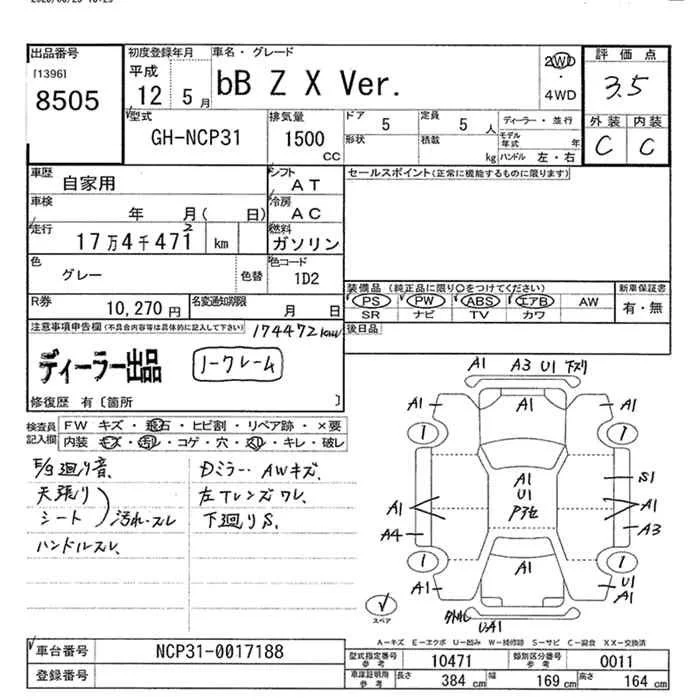 出品番号
[1396]
8505
初度登録年月
平成
12 5月
車名・グレード
bB Z X Ver.
2WD
・
4WD
評価点
3.5
外装 内装
C C
型式
GH-NCP31
排気量
1500
CC
ドア 5
形状
定員 5 人
積載 kg
ディーラー・並行
モデル年式 年
ハンドル 左・右
車歴
自家用
シフト
AT
セールスポイント(正常に機能するものに限ります)
車検
年 月( 日)
冷房
AC
走行
17万4千471 km
2
燃料
ガソリン
色
グレー
色替
色コード
1D2
装備品 (純正品に限り○をつけてください)
PS PW ABS エアB AW
SR ナビ TV カワ
新車保証書
有・無
R券
10,270円
名変通知期限
月 日
後日品
注意事項申告欄(不具合内容等は具体的に記入して下さい)
174472km
ディーラー出品
ノークレーム
修復歴 有〔箇所 〕
検査員記入欄
FW キズ・飛石・ヒビ割・リペア跡・×要
内装 キズ・汚れ・コゲ・穴・スレ・キレ・破レ
E/g廻り音、
天張り
シート
汚れ・スレ
ハンドルスレ、
Dミラー・AWキズ、
左Tレンズワレ、
下廻りS、
A1 A3 U1 下スリ
A1 A1 A1
1 1
A1
U1
S1
A1 A1
A4 A3
1 1
A1 A1 U1
A1
U・A1
スペア
A-キズ E-エクボ U-凹み W-補修跡 S-サビ C-腐食 XX-交換済
車台番号
NCP31-0017188
登録番号
型式指定番号
参考
10471
類別区分番号
参考
0011
車庫証明用
参考
長さ 384 cm
幅 169 cm
高さ 164 cm